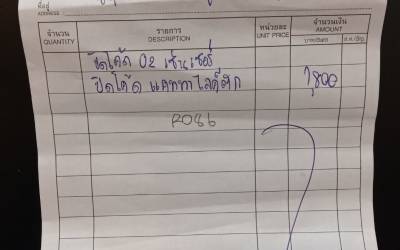 ที่อยู่
ADDRESS
จำนวน รายการ หน่วยละ จำนวนเงิน
QUANTITY DESCRIPTION UNIT PRICE AMOUNT
บาท/Baht ส.ต./Stg.
ปิดโค้ด O2 เซ็นเซอร์
ปิดโค้ด แคททาไลติก 1,800
P086